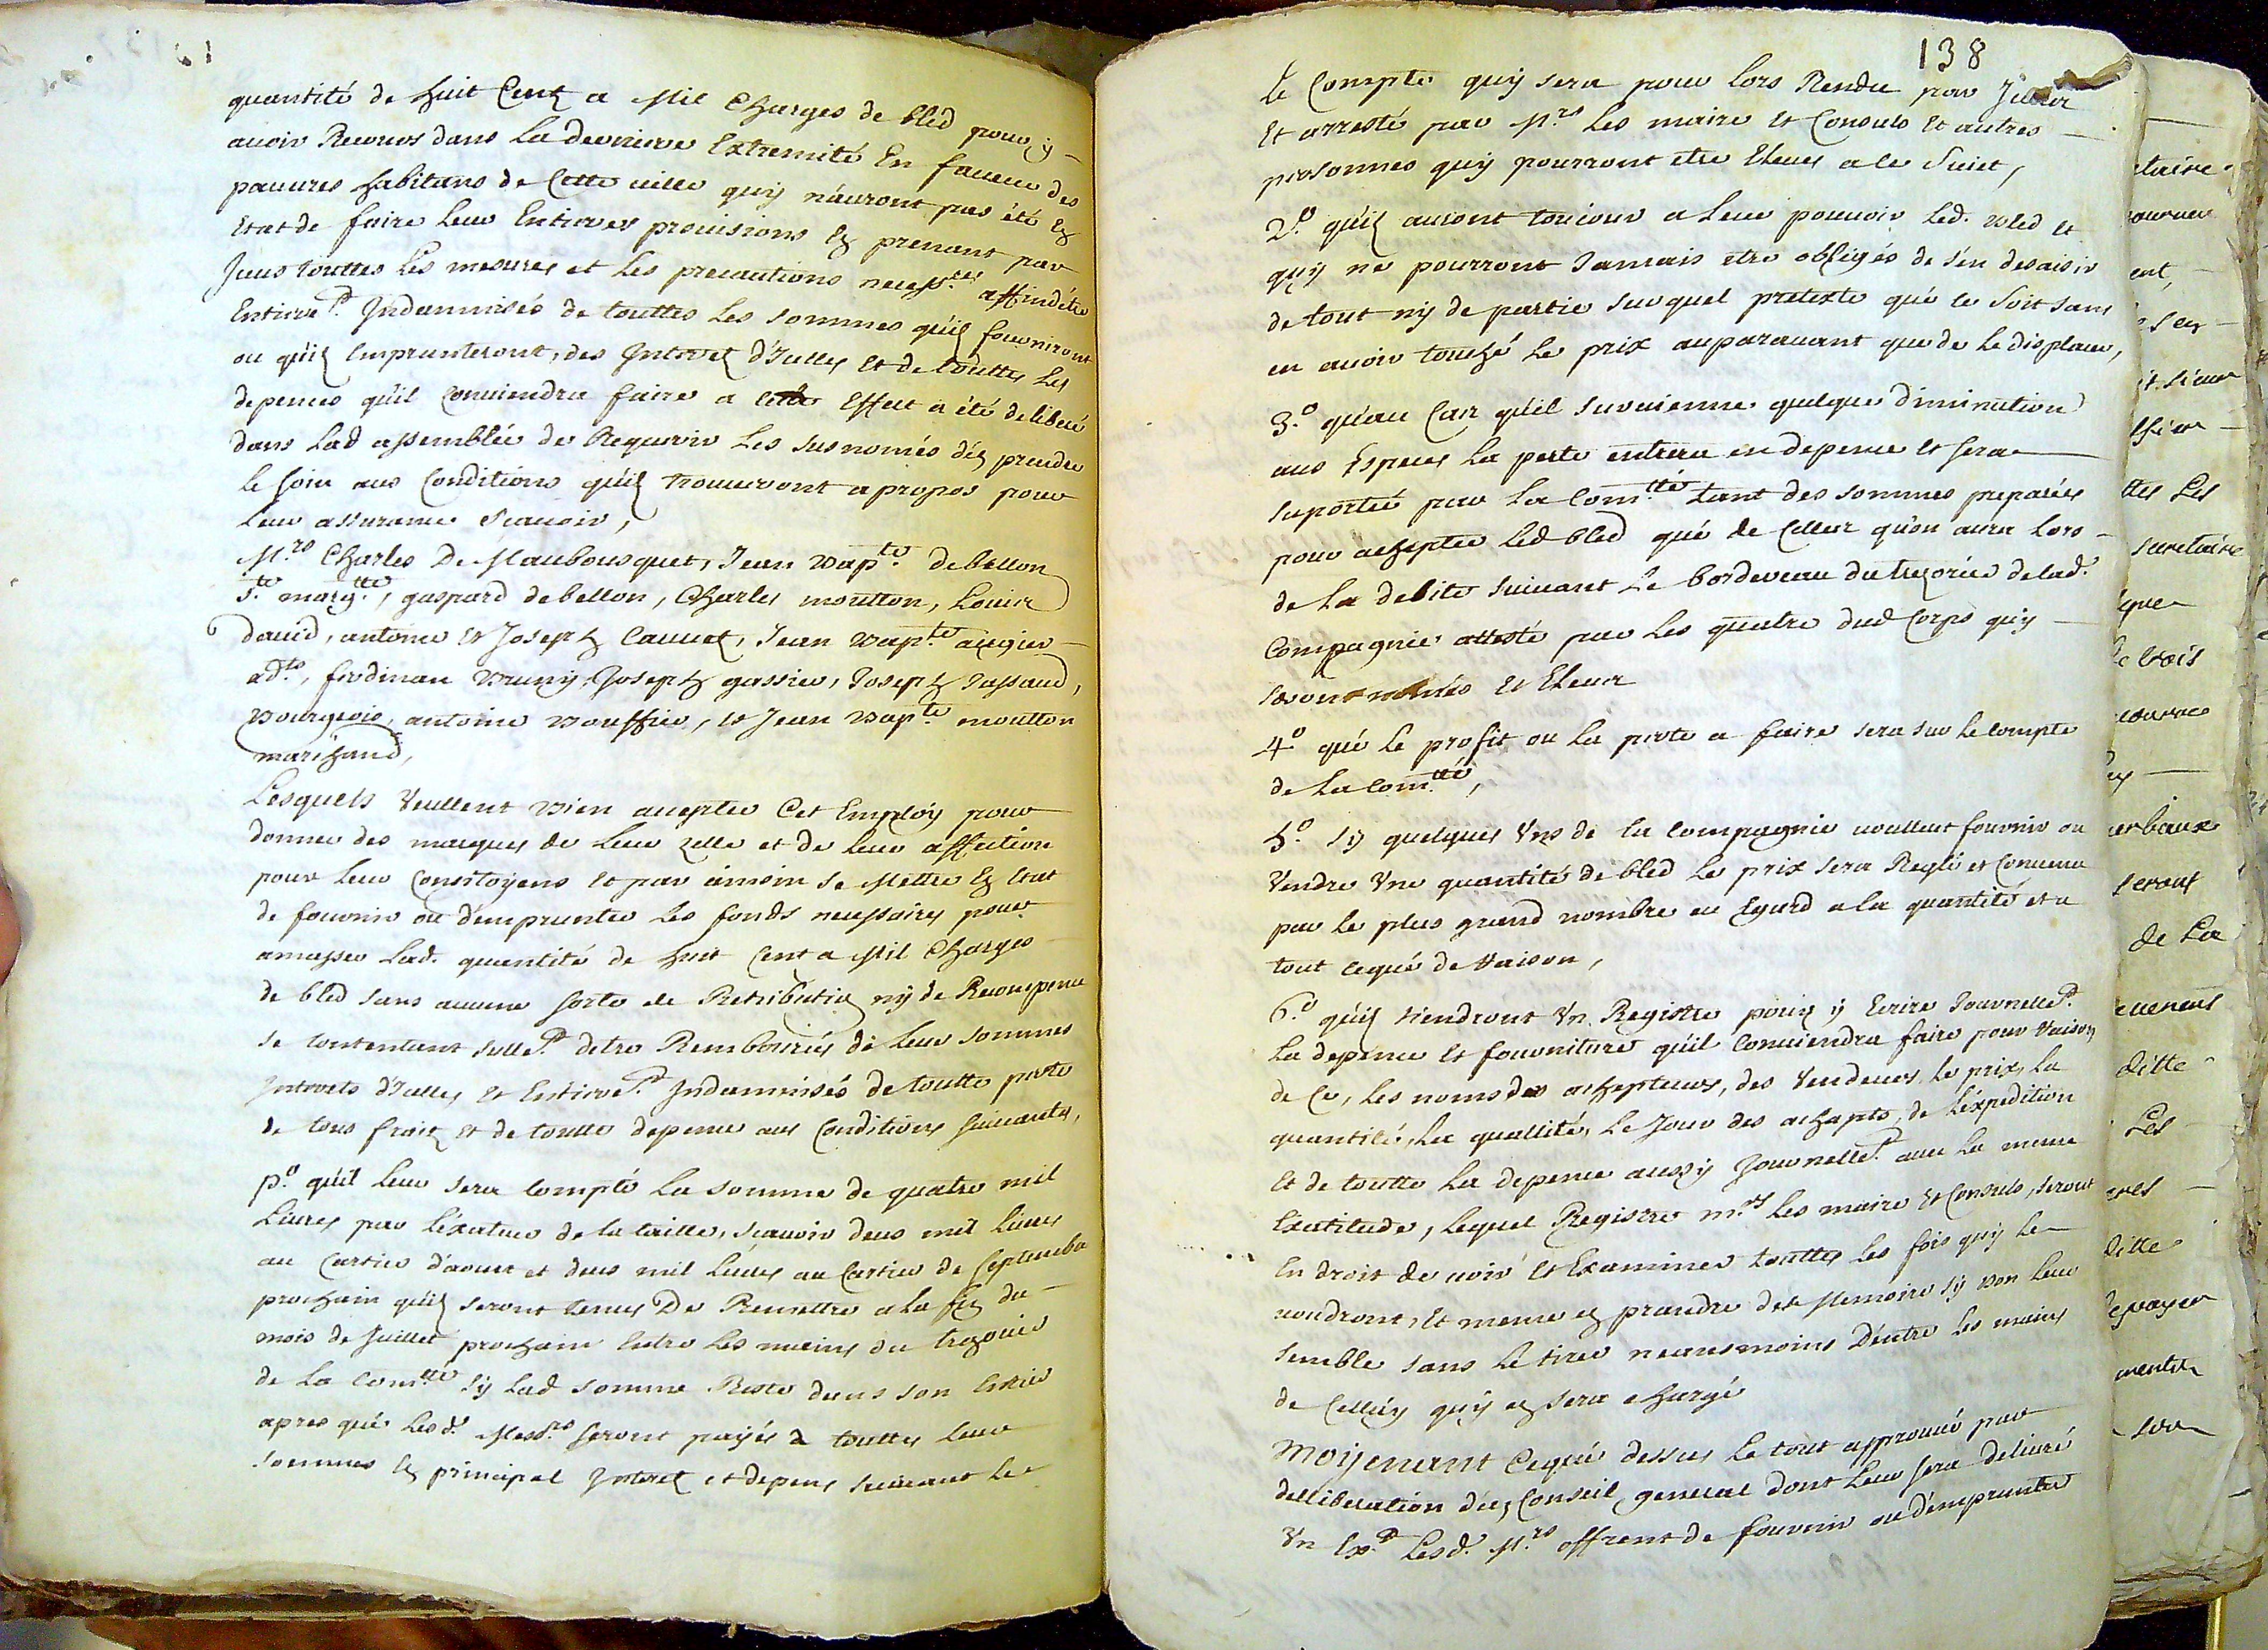 quantité de huit Cent a Mil Charges de bled pour y
auoir Recours dans La derniere Extremité En faueur des
pauures habitans de Cette uille quy n'auront pas été En
Etat de faire leur Entieres prouisions En prenant par
Iceus touttes Les mesures et Les precautions necess.res affin d'étre
Entiere.t Indamnisés de touttes Les sommes qu'ils fourniront
ou qu'ils Emprunteront, des Interet d'Icelles Et de touttes Les
depences qu'il Conuiendra faire a Effect a été deliberé
dans Lad assemblée de Requerir Les susnomés d'En prendre
le soin aus Conditions qu'ils trouueront a propos pour
Leur assurance scauoir,
M.rs Charles De Maubousquet, Jean Bap.te de bellon
S.te marg.tte, gaspard de bellon, Charles moutton, Louis
dauid, antoine Et Joseph Cauuet, Jean Bap.te augier
ad.ts, ferdinan Bruny, Joseph gassier, Joseph Jassaud,
Bourgeois, antoine Bouffier, Et Jean Bap.te moutton
marchand,
Lesquels Veullent Bien accepter Cet Employ pour
donner des marques de Leur zelle et de Leur affection
pour Leur Concitoyens Et par ainsin se Mettre En Etat
de fournir ou d'emprunter Les fonds necessaires pour
amasser Lad. quantité de huit Cent a Mil Charges
de bled sans aucune sorte de Retribution ny de Recompence
se Contentant sulle.t detre Remboursés de Leur sommes
Interets d'Icelles Et Entiere.t Indamnisés de toutte perte
de tous fraix Et de toutte depence aus Conditions suiuantes,
p.o qu'il Leur sera Compté La somme de quatre mil
Liures par L'exacteur de la taille, scauoir deus mil Liures
au Cartier d'aoust et deus mil Liures au Cartier de Septembre
prochain qu'ils seront tenus De Remettre a la fin du
mois de Juillet prochain Entre Les mains du trezorier
de La Com.tté sy Lad somme Reste dans son Entier
apres qué Lesd. Mess.rs seront payés de touttes Leur
sommes En principal Interet et depens suiuant Le
138
le Compte quy sera pour lors Rendu par Iceux
Et arresté par M.rs Les maire Et Consuls Et autres
personnes quy pourront etre Eleues a ce Suiet,
2.o qu'ils auront touiour a Leur pouuoir Led. Bled Et
quy ne pourront Jamais etre obligés de s'en desaisir
de tout ny de partie sur quel pretexte qué ce Soit sans
en auoir touché Le prix auparauant que de le displacer,
3.o qu'au Cas qu'il suruienne quelque diminution
aus Especes La perte entrera en depence Et sera
suportée par La Com.tté tant des sommes preparées
pour achepter Led bled qué de Celles qu'on aura Lors
de La debite suiuant Le bordereau du trezorier de lad.
Compagnie attesté par Les quatre dud Corps quy
seront només Et Eleus
4.o qué Le profit ou La perte a faire sera sur Le Compte
de La Com.tté,
5.o sy quelques Vns de la Compagnie uoullent fournir ou
Vendre Vne quantité de bled Le prix sera Reglé et Conuenu
par le plus grand nombre eu Egard a la quantité et a
tout cequé de Raison,
6.o qu'ils tiendront Vn Registre pour y Ecrire Journelle.t
La depence Et fourniture qu'il Conuiendra faire pour Raison
de Ce, Les noms des achepteurs, des Vendeurs, Le prix, La
quantité, La quallité, Le Jour des achapts, de L'expedition
Et de toutte La depence aussy Journelle.t auec La meme
Exactitude, Lequel Registre m.rs Les maire Et Consuls, seront
En droit de uoir Et Examiner touttes Les fois quy Le
uoudront, Et meme En prandre des Memoire sy Bon Leur
semble sans Le tirer neansmoins D'entre Les mains
de Celluy quy En sera chargé
Moyenant Cequé dessus Le tout approuué par
delliberation d'un Conseil general dont Leur sera deliuré
Vn Ex.t Lesd. M.rs offrent de fournir ou d'emprunter